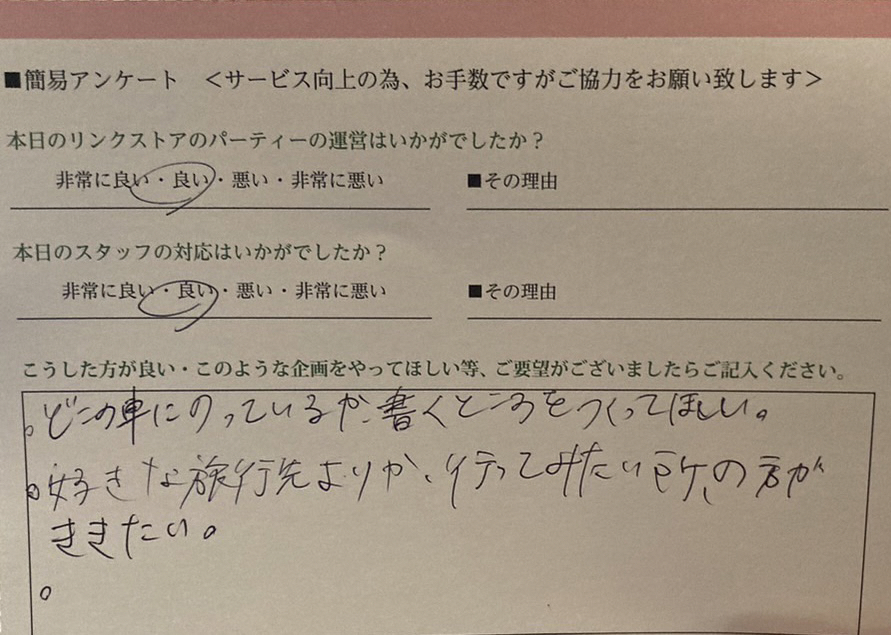 ■簡易アンケート ＜サービス向上の為、お手数ですがご協力をお願い致します＞
本日のリンクストアのパーティーの運営はいかがでしたか？
非常に良い・良い・悪い・非常に悪い ■その理由
本日のスタッフの対応はいかがでしたか？
非常に良い・良い・悪い・非常に悪い ■その理由
こうした方が良い・このような企画をやってほしい等、ご要望がございましたらご記入ください。
。どこの車にのっているか、書くところをつくってほしい。
。好きな旅行先よりか、行ってみたい所、の方が
ききたい。
。